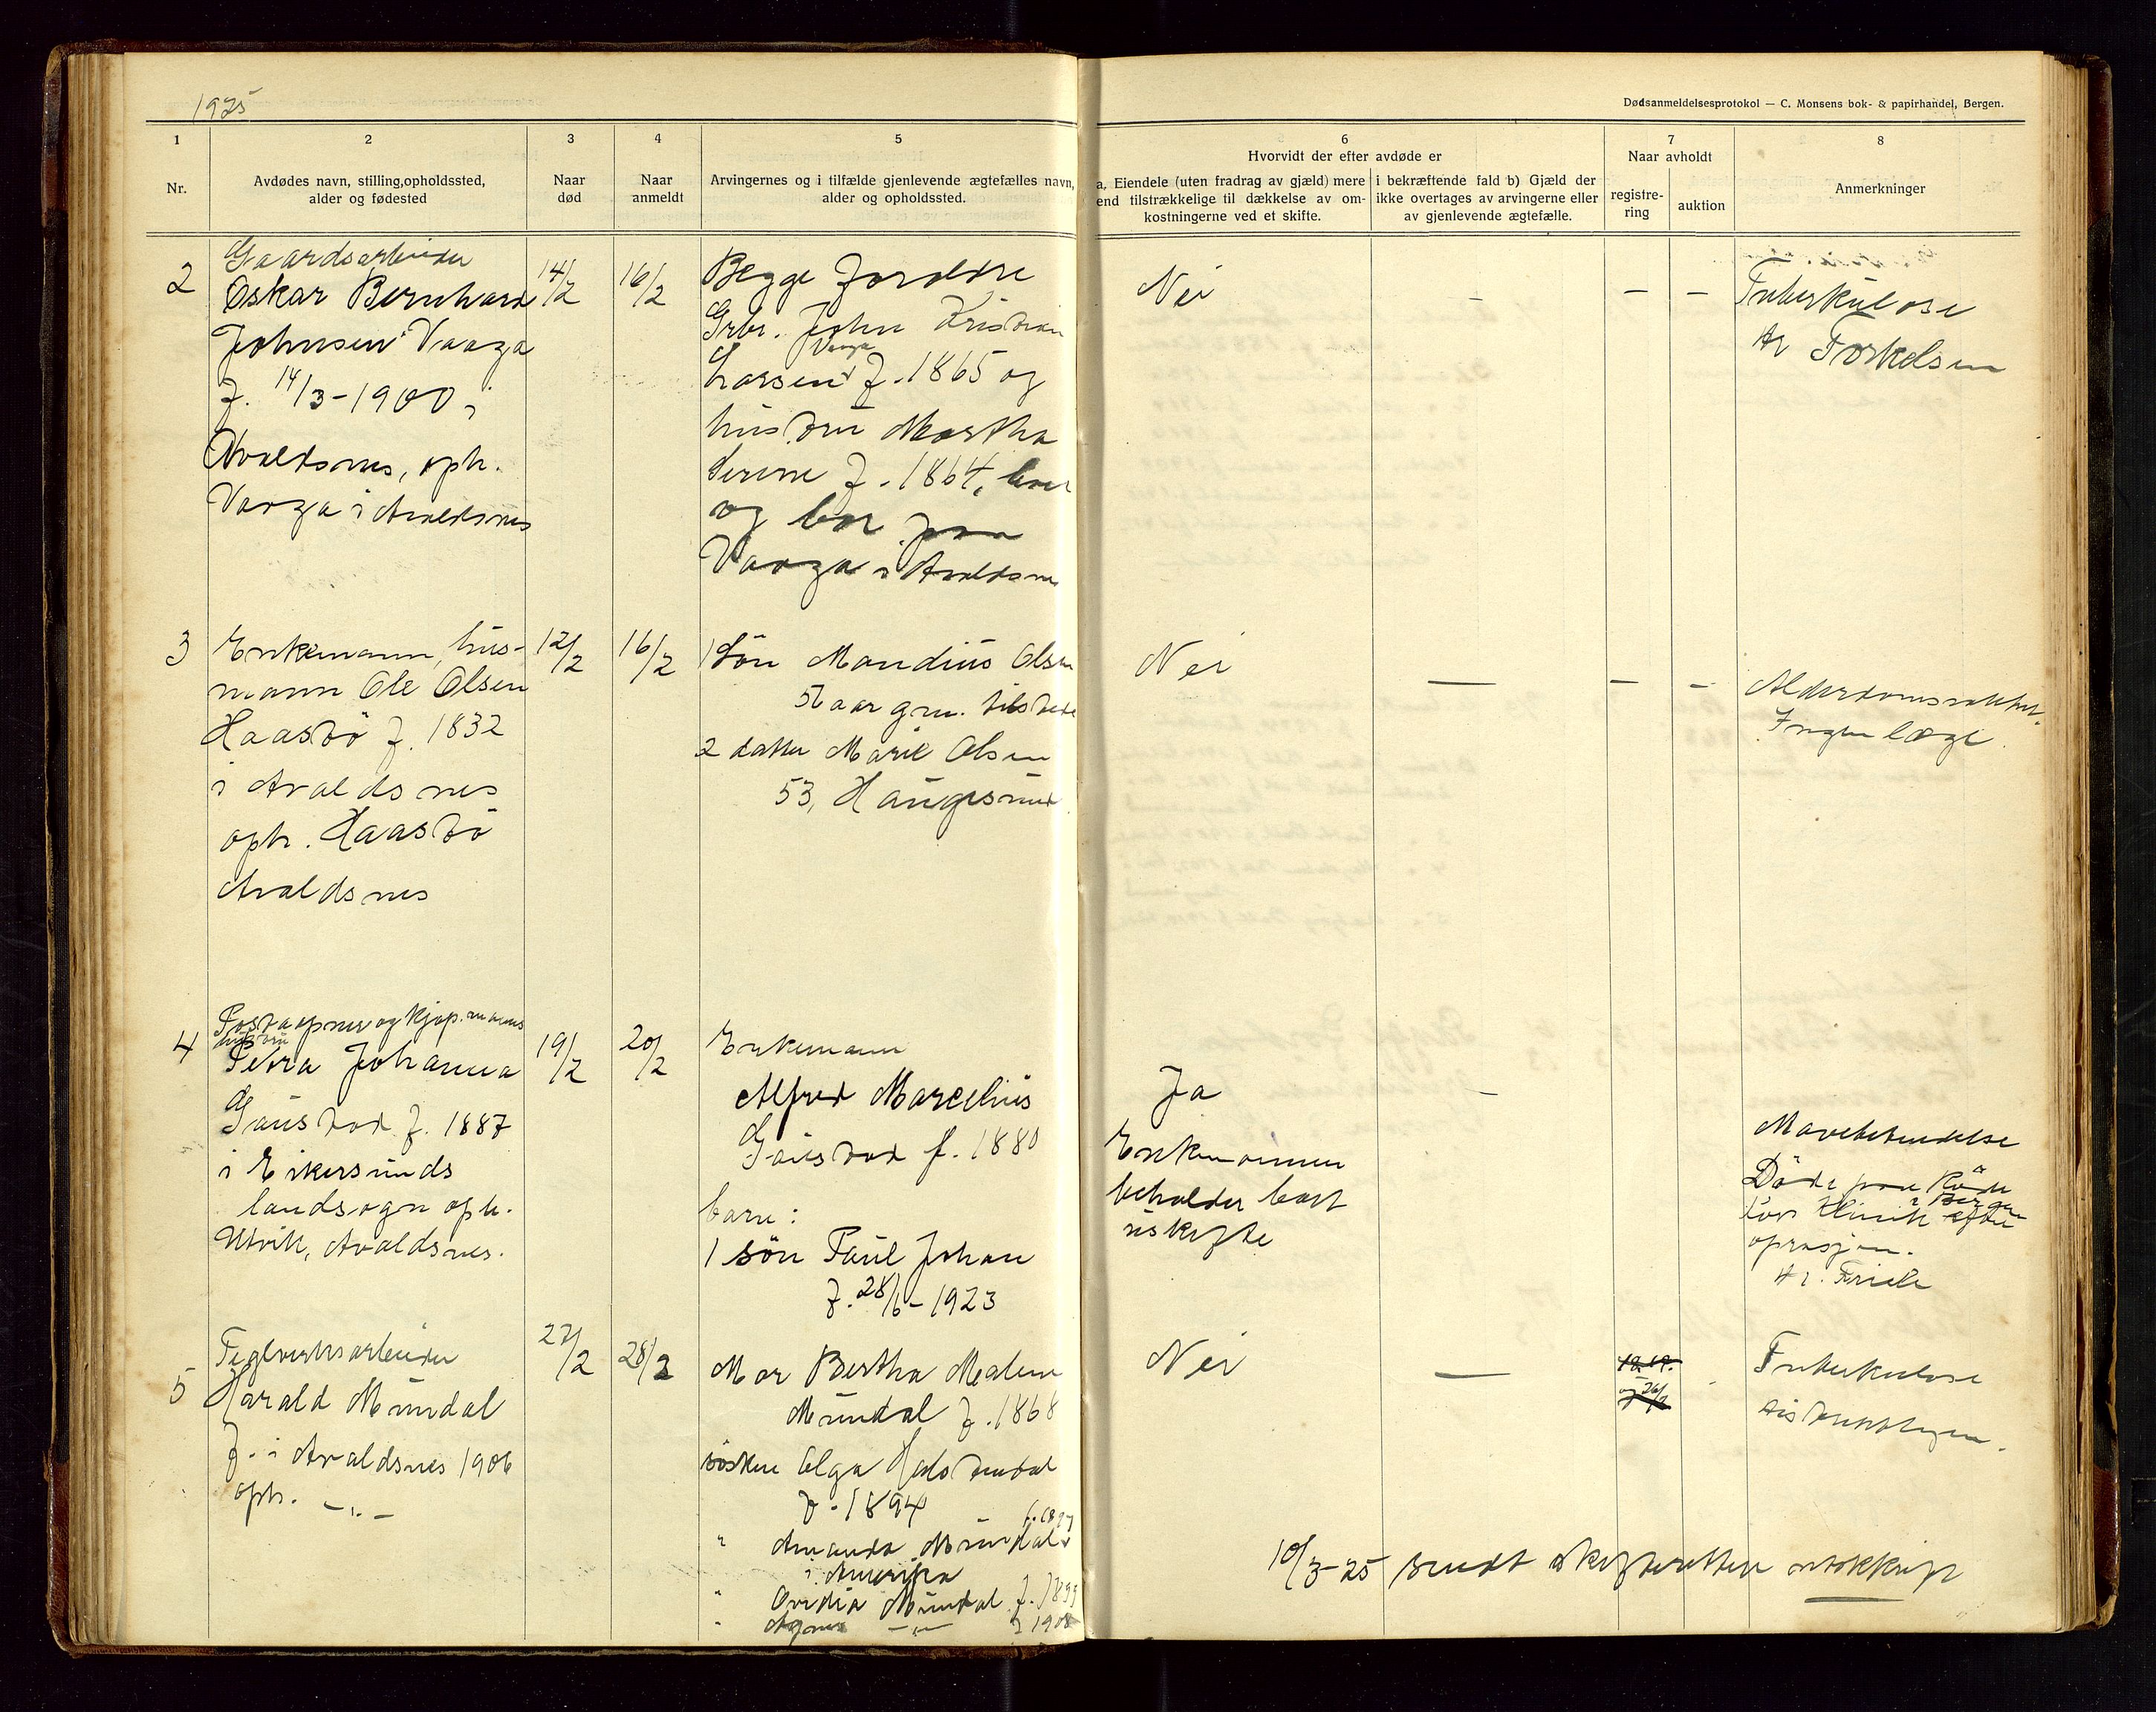 1925
Dødsanmeldelsesprotokol — C. Monsens bok- & papirhandel, Bergen.
1
2
3
4
5
6
7
8
Nr.
Avdødes navn, stilling, opholdssted,
alder og fødested
Naar
død
Naar
anmeldt
Arvingernes og i tilfælde gjenlevende ægtefælles navn,
alder og opholdssted.
Hvorvidt der efter avdøde er
a. Eiendele (uten fradrag av gjæld) mere
end tilstrækkelige til dækkelse av om-
kostningerne ved et skifte.
i bekræftende fald b) Gjæld der
ikke overtages av arvingerne eller
av gjenlevende ægtefælle.
Naar avholdt
registre-
ring
auktion
Anmerkninger
2
Gaardsarbeider
Oskar Bernhard
Johnsen Vaaga
f. 14/3-1900 i
Avaldsnes, oph.
Vaaga i Avaldsnes
14/2
16/2
Begge foreldre
Grbr. John Kristian
Vaaga
Larsen f. 1865 og
hustru Martha
Serine f. 1864, lever
og bor paa
Vaaga i Avaldsnes
Nei
-
-
-
Tuberkulose
Dr Torkelsen
3
Enkemann, hus-
mann Ole Olsen
Haastö f. 1832
i Avaldsnes
oph. Haastö
Avaldsnes
12/2
16/2
1 Sön Mandius Olsen
aar gm. tilstede
2 datter Marie Olsen
53, Haugesund
Nei
—
-
-
Alderdomssvakhet.
Ingen læge.
4
Postaapner og kjøp.manns
hustru
Petra Johanna
Gaustad f. 1887
i Eikersunds
landsogn oph.
Utvik, Avaldsnes.
19/2
20/2
Enkemann
Alfred Marcelius
Gaustad f. 1880
barn:
1 sön Paul Johan
f. 28/6-1923
Ja
Enkemannen
beholder boet
uskifte
-
Mavebetendelse
Döde paa Röde
i Bergen
Kors Klinik efter
oprasjon.
Dr. Friele
5
Teglverksarbeider
Harald Mundal
f. i Avaldsnes 1906
oph. -"-
27/2
28/2
Mor Bertha Malene
Mundal f. 1868
søsken Olga
f. 1894
f. 1897
" Amanda Mundal
i Amerika
" Ovidia Mundal f. 1899
" Agnes -"- f 1908
Nei
—
-
Tuberkulose
Distriktslægen.
10/3-25 sendt skifteretten utskrift